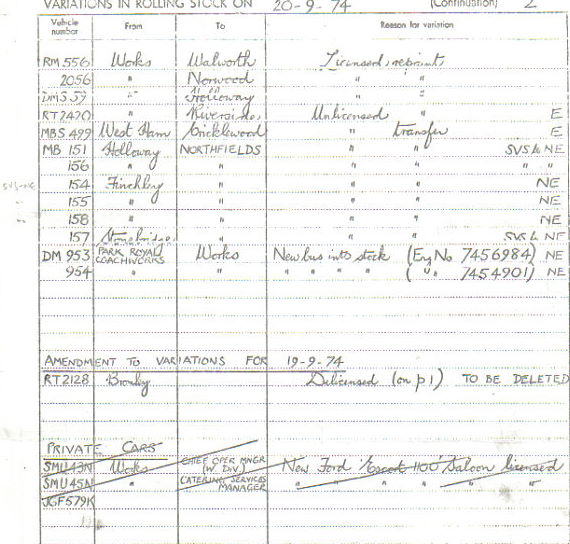 VARIATIONS IN ROLLING STOCK ON 20-9-74 (Continuation) 2
Vehicle number From To Reason for variation
RM 556 Works Walworth Licensed, reprints
2056 " Norwood " "
DMS 59 " Holloway " "
RT2420 " Riverside, Unlicensed " E
MBS 499 West Ham Cricklewood " transfer E
MB 151 Holloway NORTHFIELDS " " SVS & NE
156 " " " " " "
SVS-NE 154 Finchley " " " NE
" 155 " " " " NE
" 158 " " " " NE
157 Stonebridge, " " " SVS & NE
DM 953 PARK ROYAL COACHWORKS Works New bus into stock (Eng No 7456984) NE
954 " " " " " " ( " " 7454901) NE
AMENDMENT TO VARIATIONS FOR 19-9-74
RT2128 Bromley Delicensed (on p1) TO BE DELETED
PRIVATE CARS
SMU43N Works CHIEF OPER MNGR (W. DIV.) New Ford 'Escort 1100' Saloon licensed
SMU45N " CATERING SERVICES MANAGER " " " " " "
JGF579K